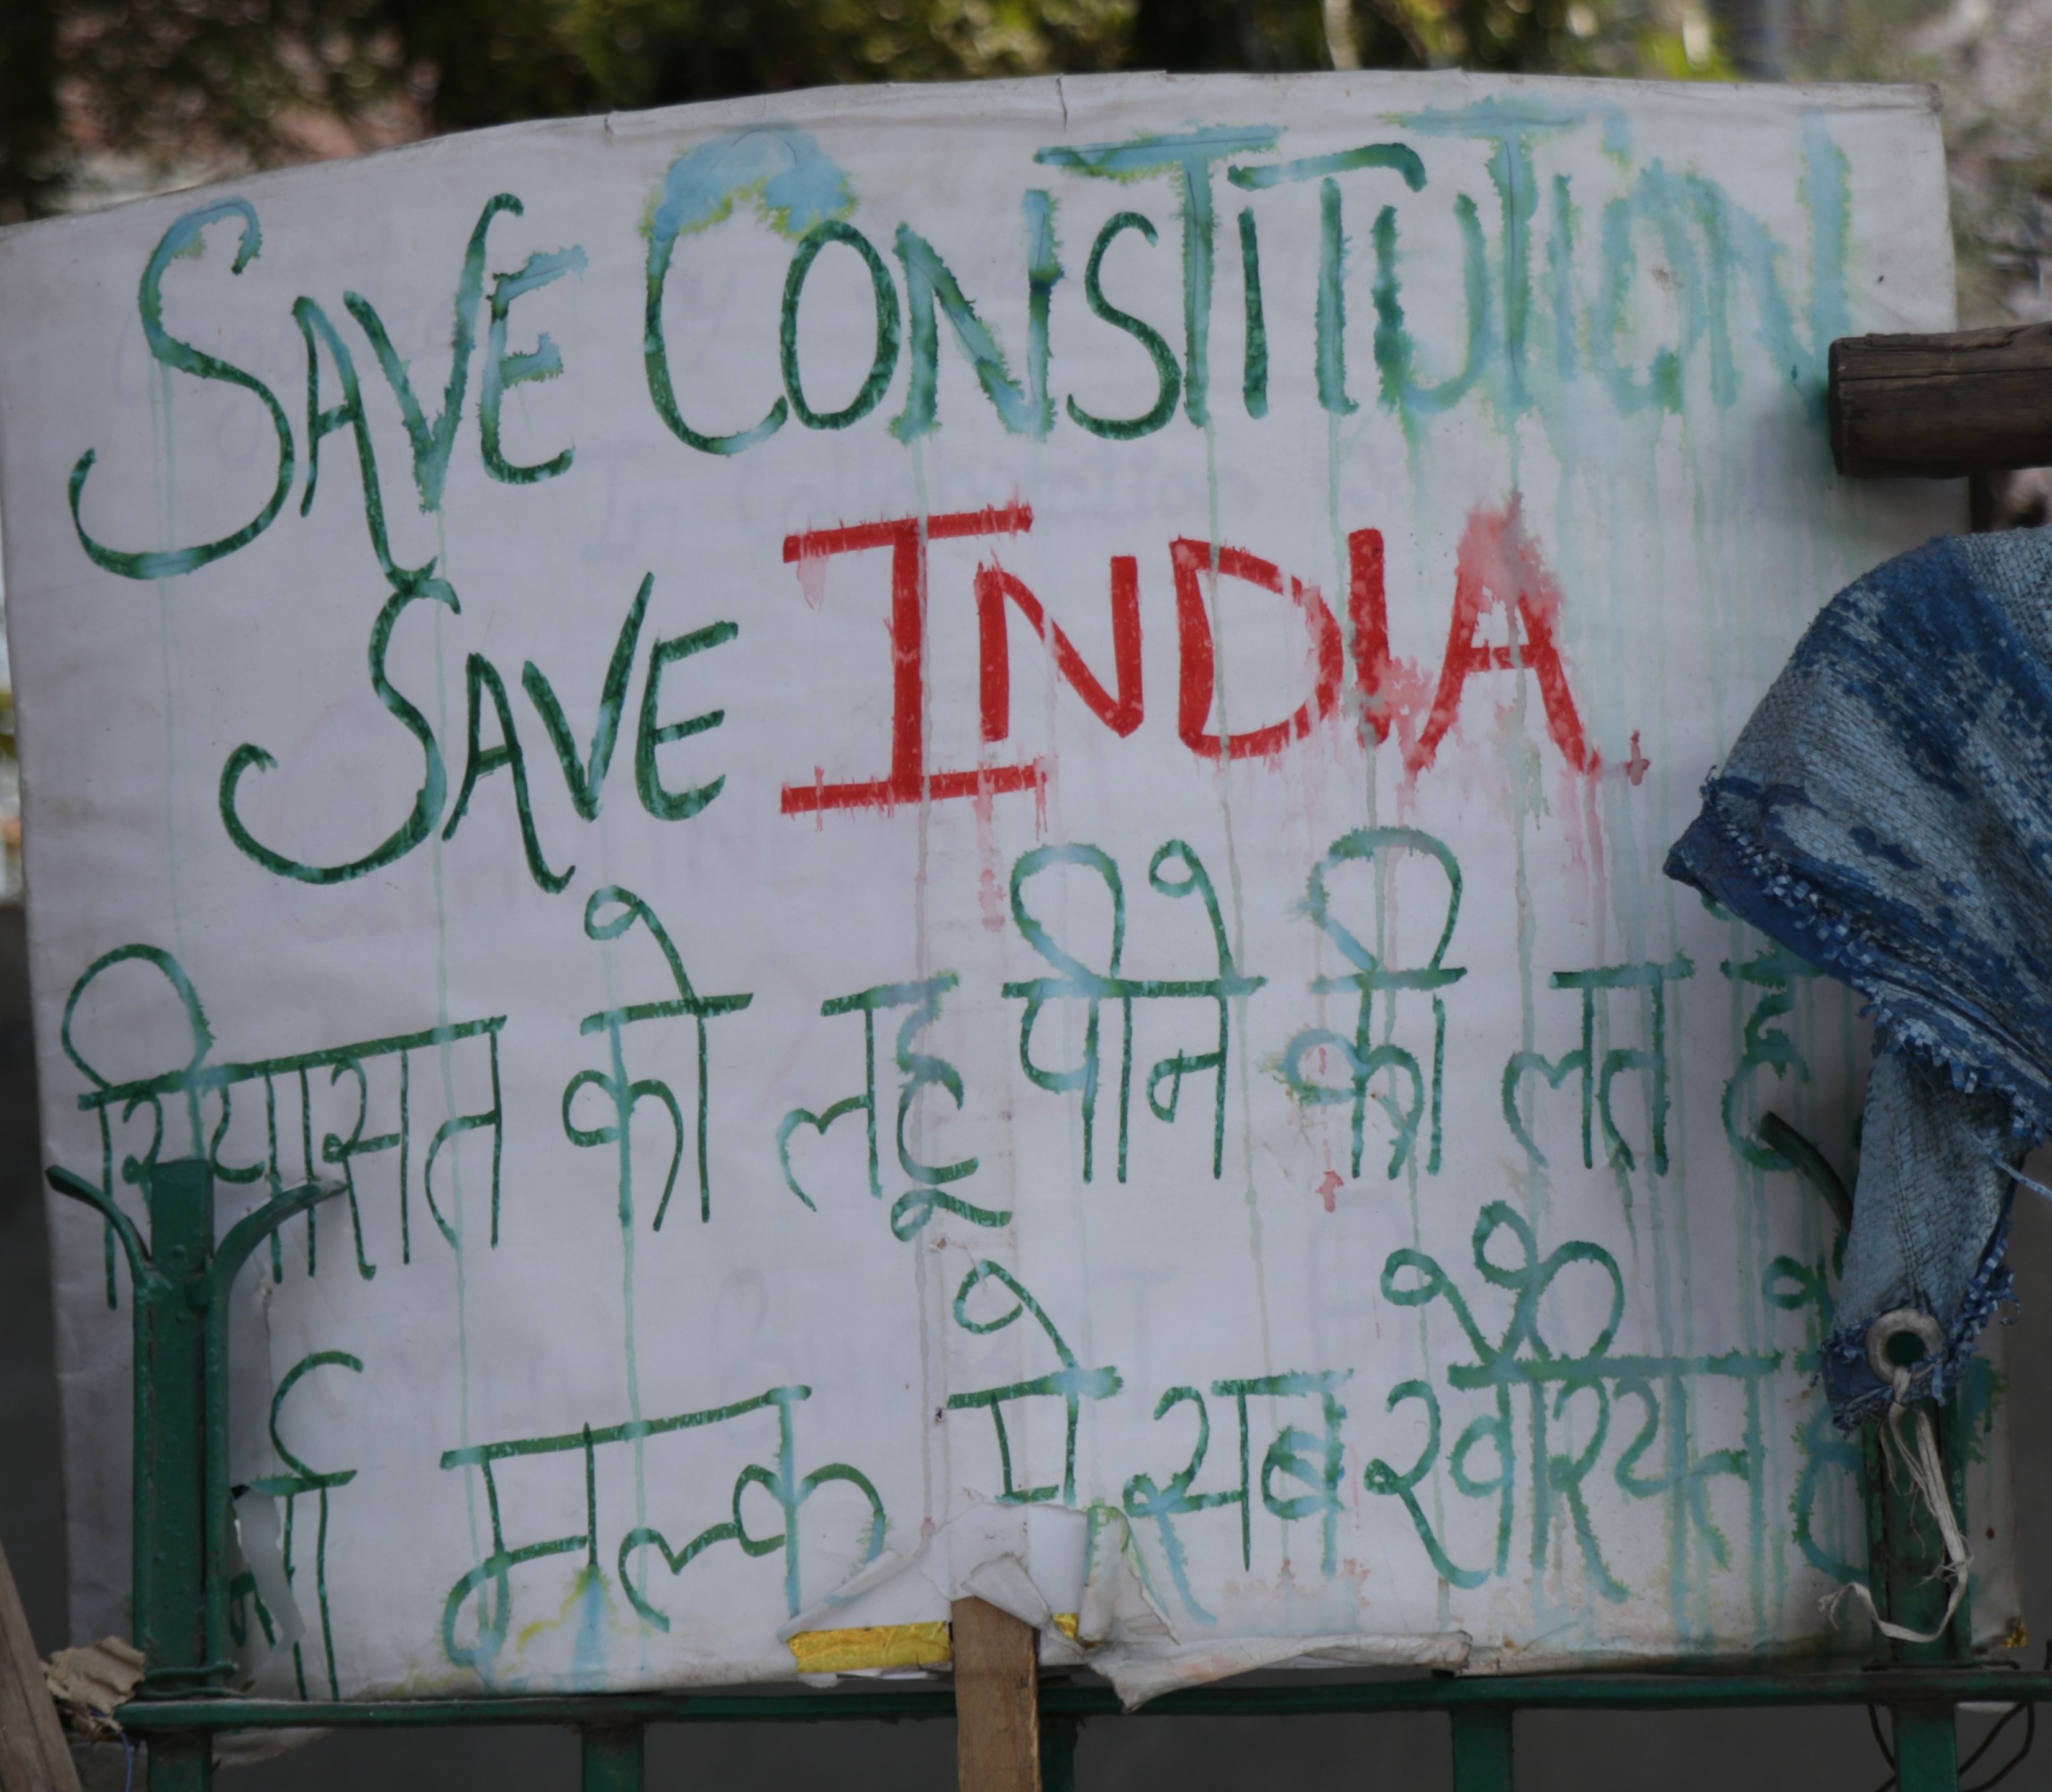 SAVE CONSTITUTION
SAVE INDIA.
सियासत को लहू पीने की लत है
मुल्क मे सब खैरियत है